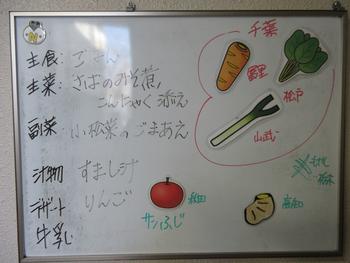 主食：ごはん
主菜：さばのみそ煮，
こんにゃく添え
副菜 小松菜のごまあえ
汁物 すまし汁
デザート りんご
牛乳
千葉
富里
松戸
山武
秋田
サンふじ
高知